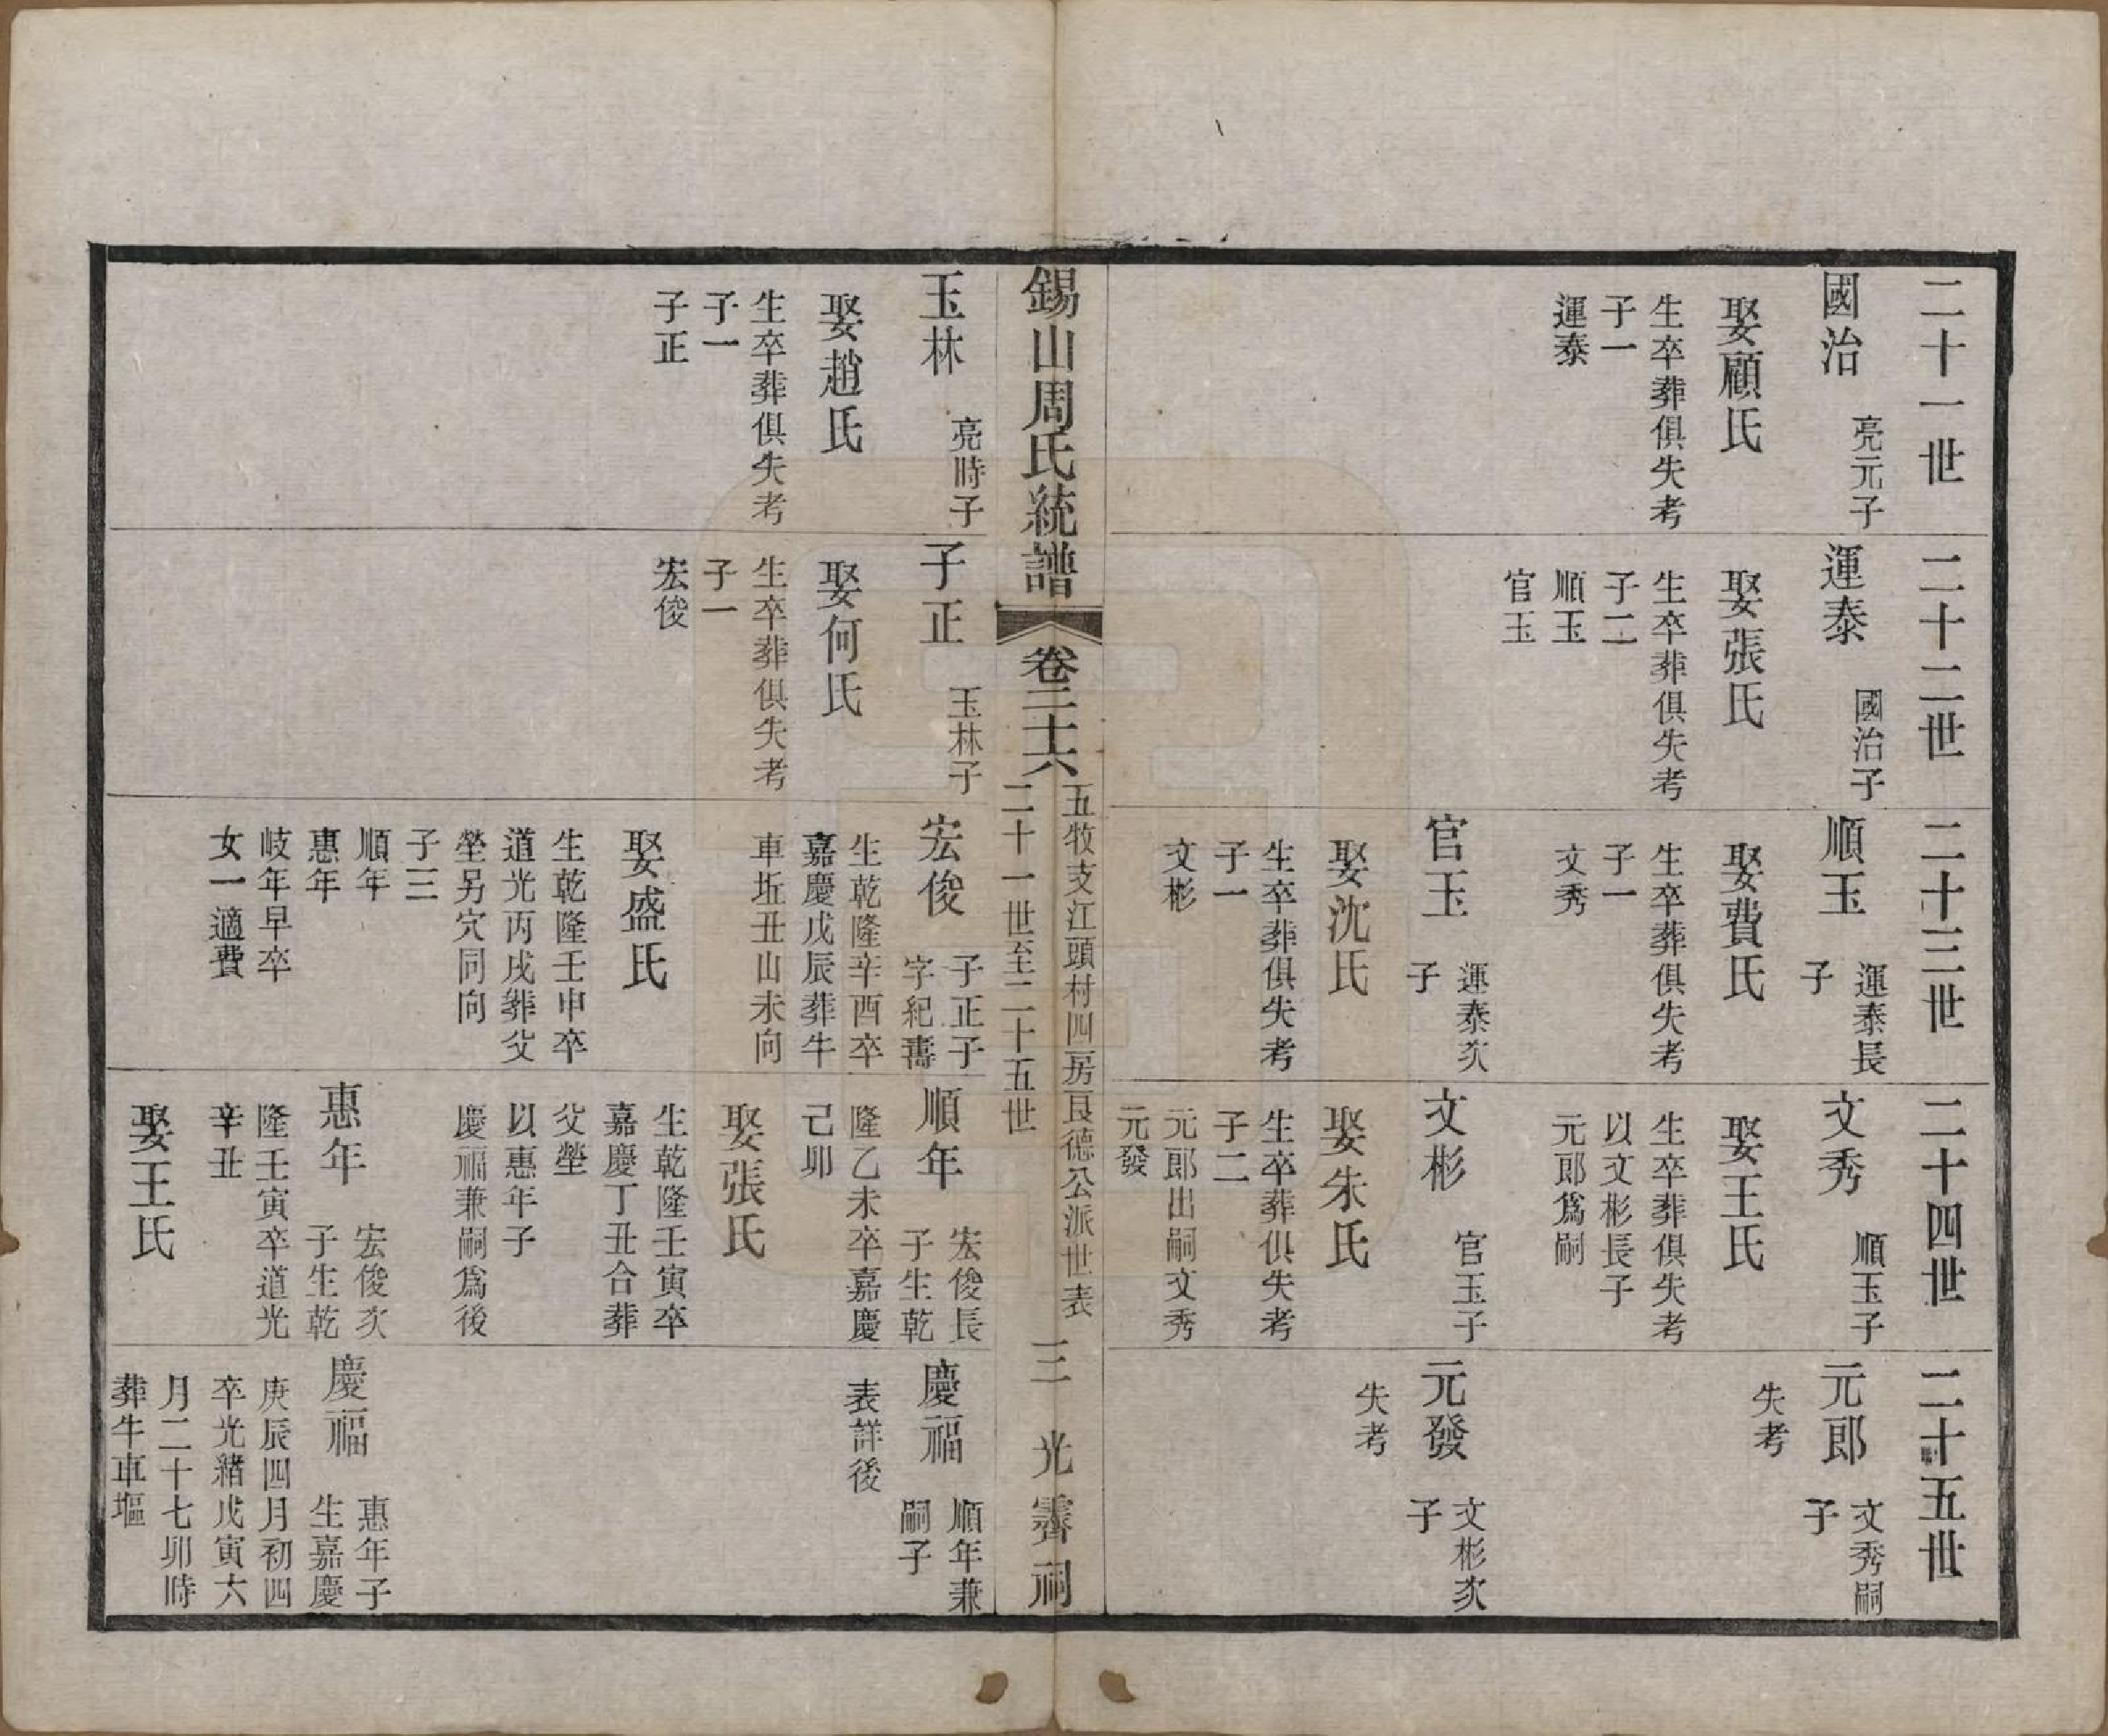 二十一世
國治
亮元子
娶顧氏
生卒葬俱失考
子一
運泰
二十二世
運泰
國治子
娶張氏
生卒葬俱失考
子二
順玉
官玉
二十三世
順玉
運泰長
子
娶費氏
生卒葬俱失考
子一
文秀
官玉
運泰次
子
娶沈氏
生卒葬俱失考
子一
文彬
二十四世
文秀
順玉子
娶王氏
生卒葬俱失考
以文彬長子
元郎爲嗣
文彬
官玉子
娶朱氏
生卒葬俱失考
子二
元郎出嗣文秀
元發
二十五世
元郎
文秀嗣
子
失考
元發
文彬次
子
失考
錫山周氏統譜
卷三十六
五牧支江頭村四房良德公派世表
二十一世至二十五世
三
光霽祠
玉林
亮時子
娶趙氏
生卒葬俱失考
子一
子正
子正
玉林子
娶何氏
生卒葬俱失考
子一
宏俊
宏俊
子正子
字紀壽
生乾隆辛酉卒
嘉慶戊辰葬牛
車坵丑山未向
娶盛氏
生乾隆壬申卒
道光丙戌葬父
塋另穴同向
子三
順年
惠年
岐年早卒
女一適費
順年
宏俊長
子生乾
隆乙未卒嘉慶
己卯
娶張氏
生乾隆壬寅卒
嘉慶丁丑合葬
父塋
以惠年子
慶福兼嗣爲後
惠年
宏俊次
子生乾
隆壬寅卒道光
辛丑
娶王氏
慶福
順年兼
嗣子
表詳後
慶福
惠年子
生嘉慶
庚辰四月初四
卒光緒戊寅六
月二十七卯時
葬牛車塸